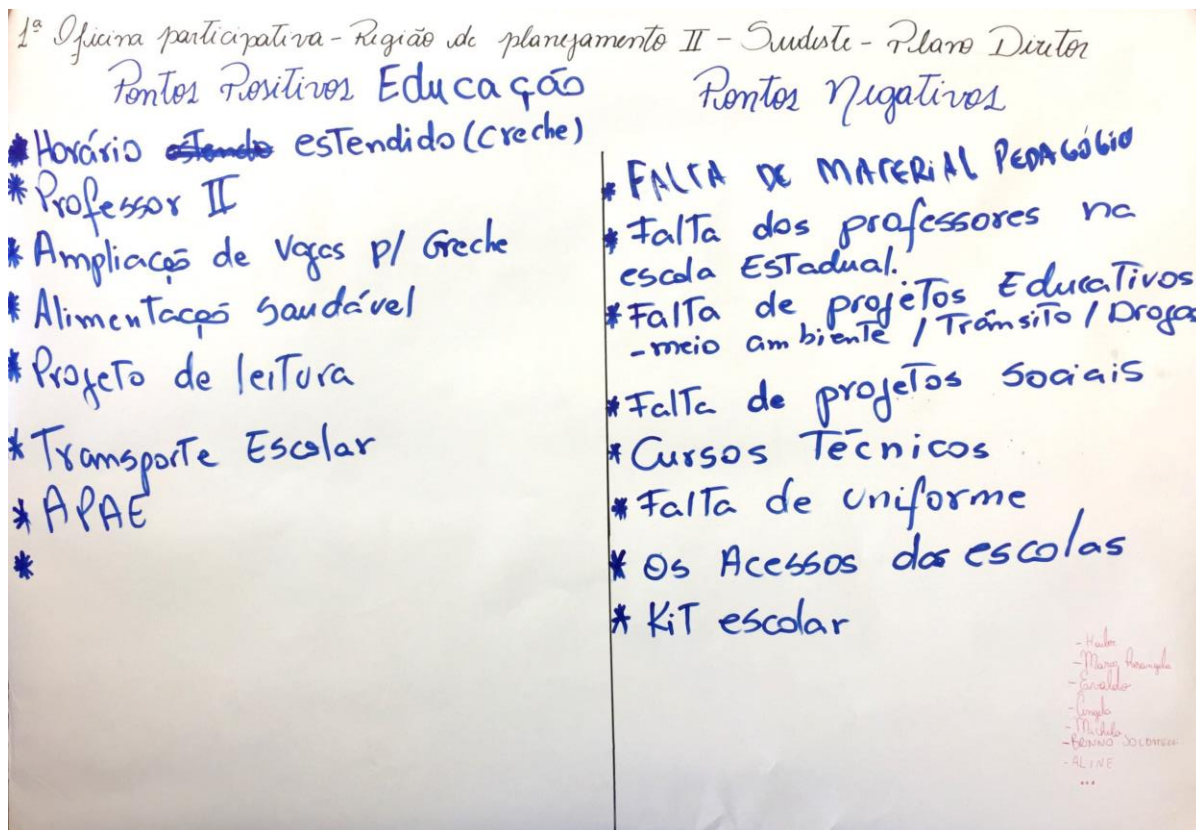 1ª Oficina participativa - Região de planejamento II - Sudeste - Plano Diretor
Pontos Positivos Educação
* Horário estendido (creche)
* Professor II
* Ampliação de Vagas p/ Creche
* Alimentação Saudável
* Projeto de leitura
* Transporte Escolar
* APAE
*
Pontos Negativos
* FALTA DE MATERIAL PEDAGÓGIO
* Falta dos professores na
escola Estadual.
* Falta de projetos Educativos
- meio ambiente / Trânsito / Drogas
* Falta de projetos Sociais
* Cursos Técnicos
* Falta de uniforme
* Os Acessos das escolas
* Kit escolar
- Maria Rosangela
- Esvaldo
- Angela
- Michela
- BRUNNO
- ALINE
...